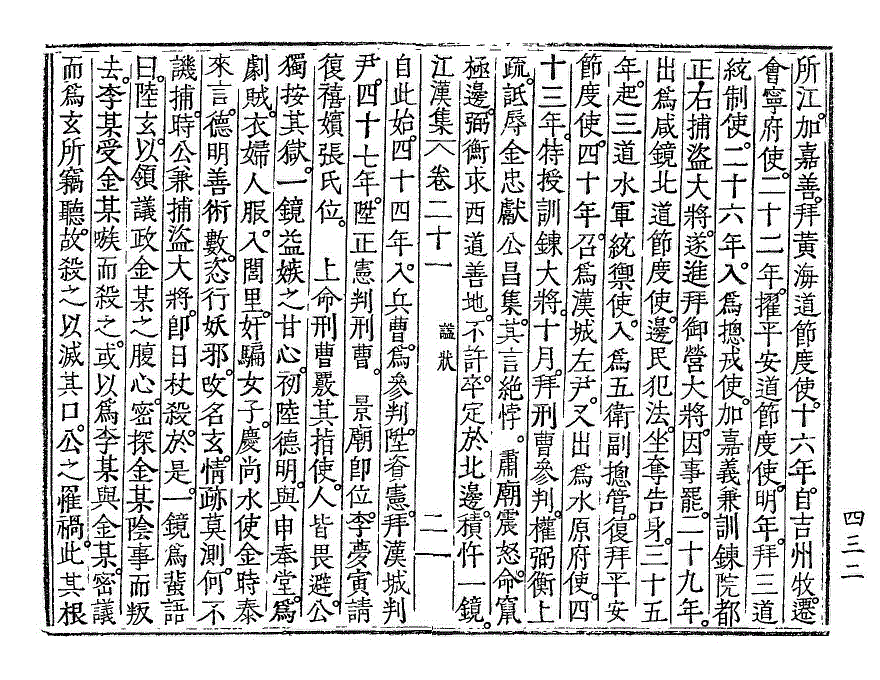 所江。加嘉善。拜黃海道節度使。十六年。自吉州牧遷
會寧府使。二十二年。擢平安道節度使。明年。拜三道
統制使。二十六年。入爲摠戎使。加嘉義兼訓鍊院都
正,右捕盜大將。遂進拜御營大將。因事罷。二十九年。
出爲咸鏡北道節度使。邊民犯法。坐奪告身。三十五
年。起三道水軍統禦使。入爲五衛副摠管。復拜平安
節度使。四十年。召爲漢城左尹。又出爲水原府使。四
十三年。特授訓鍊大將。十月。拜刑曹參判。權弼衡上
疏。詆辱金忠獻公昌集。其言絶悖。肅廟震怒。命竄
極邊。弼衡求西道善地。不許。卒定於北邊。積忤一鏡。
江漢集 卷二十一 諡狀 二一
自此始。四十四年。入兵曹。爲參判。陞資憲。拜漢城判
尹。四十七年。陞正憲判刑曹。 景廟卽位。李慶寅請
復禧嬪張氏位。 上命刑曹覈其指使。人皆畏避。公
獨按其獄。一鏡益嫉之甘心。初陸德明。與申奉堂。爲
劇賊。衣婦人服。入閭里。奸騙女子。慶尙水使金時泰
來言。德明善術數。恣行妖邪。改名玄。情跡莫測。何不
譏捕。時公兼捕盜大將。卽日杖殺。於是。一鏡爲蜚語
曰。陸玄。以領議政金某之腹心。密探金某陰事而叛
去。李某受金某嗾而殺之。或以爲李某與金某。密議
而爲玄所竊聽。故殺之以滅其口。公之罹禍。此其根
四三二